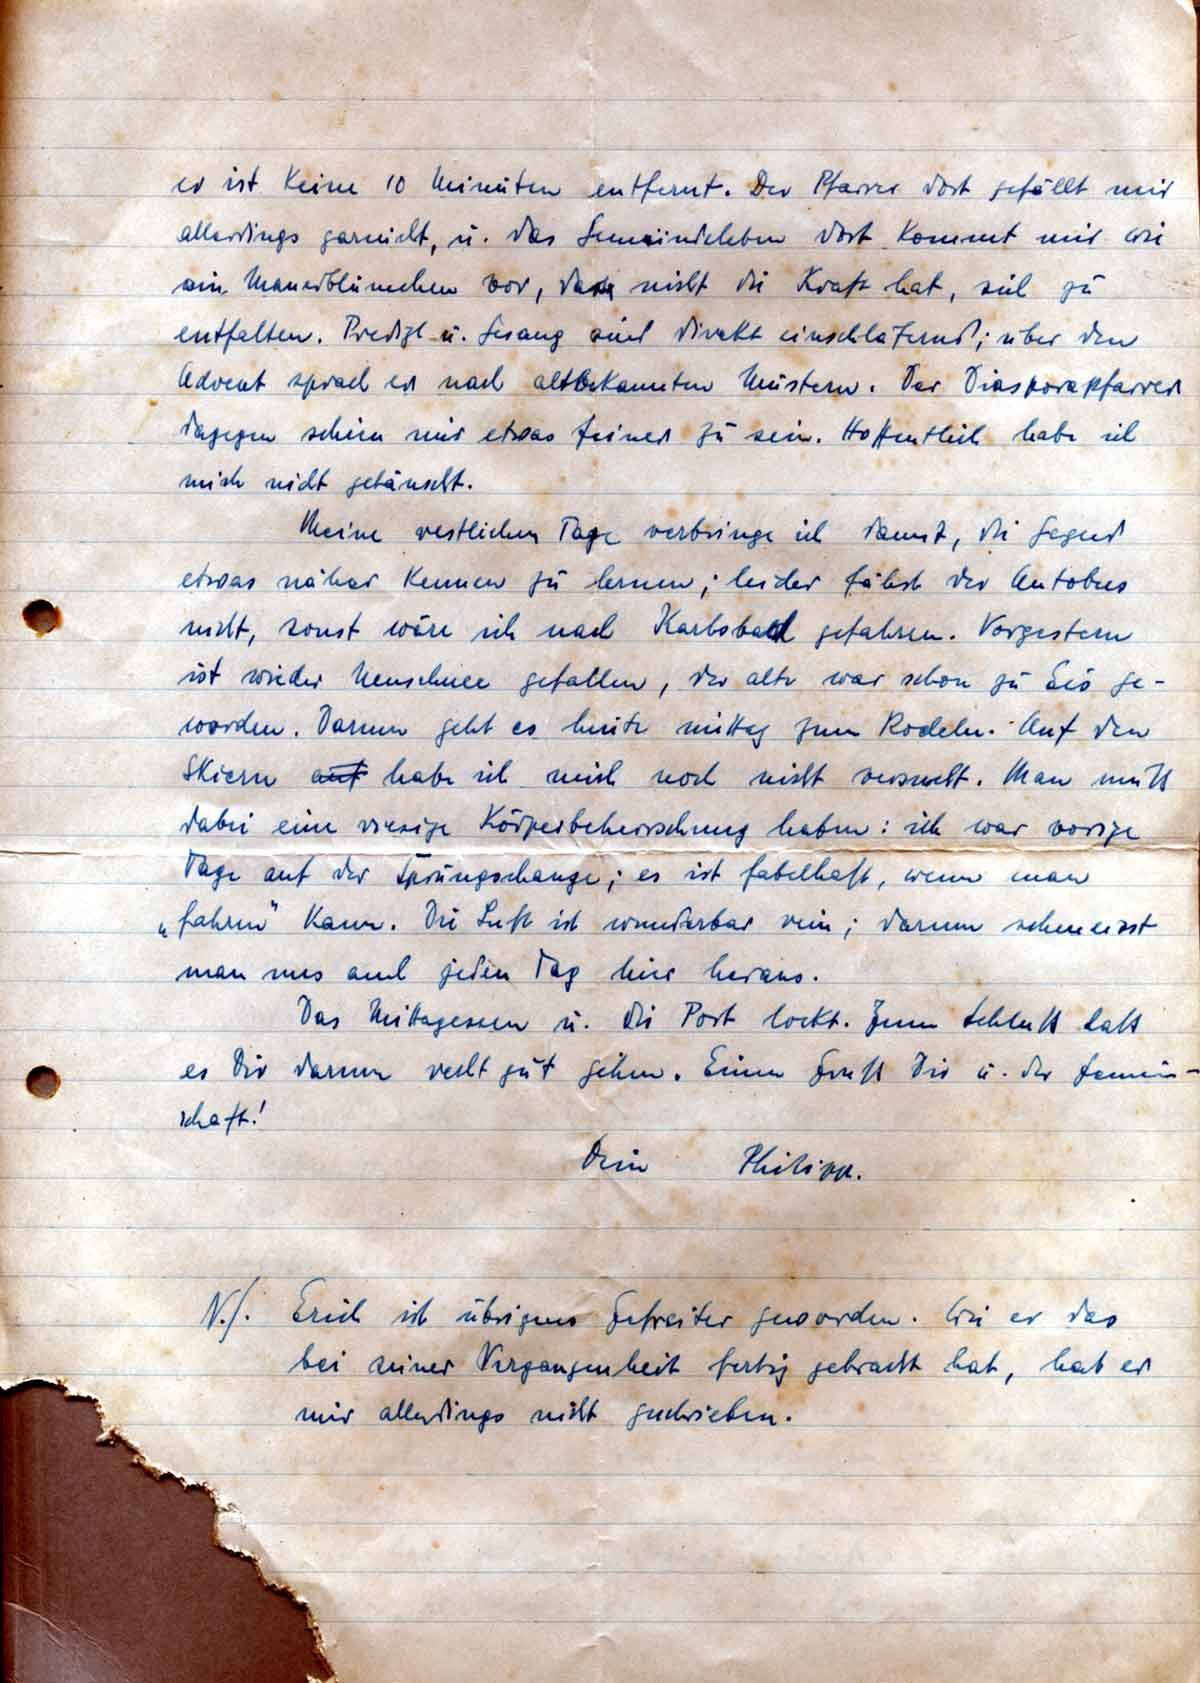 er ist keine 10 Minuten entfernt. Der Pfarrer dort gefällt mir
allerdings garnicht, u. das Gemeindeleben dort kommt mir wie
ein Mauerblümchen vor, das nicht die Kraft hat, sich zu
entfalten. Predigt u. Gesang sind direkt einschläfernd; über den
Advent sprach er nach altbekannten Mustern. Der Diasporapfarrer
dagegen schien mir etwas feiner zu sein. Hoffentlich habe ich
mich nicht getäuscht.
Meine restlichen Tage verbringe ich damit, die Gegend
etwas näher kennen zu lernen; leider fährt der Autobus
nicht, sonst wäre ich nach Karlsbad gefahren. Vorgestern
ist wieder Neuschnee gefallen, der alte war schon zu Eis ge-
worden. Darum geht es heute mittag zum Rodeln. Auf den
Skiern auf habe ich mich noch nicht versucht. Man muß
dabei eine riesige Körperbeherrschung haben: ich war vorige
Tage auf der Sprungschanze; es ist fabelhaft, wenn man
„fahren" kann. Die Luft ist wunderbar rein; darum schmeisst
man uns auch jeden Tag hier heraus.
Das Mittagessen u. die Post lockt. Zum Schluß laß
es Dir darum recht gut gehen. Einen Gruß Dir u. der Gemein-
schaft!
Dein Philipp.
N.S. Erich ist übrigens Gefreiter geworden. Wie er das
bei seiner Vergangenheit fertig gebracht hat, hat er
mir allerdings nicht geschrieben.